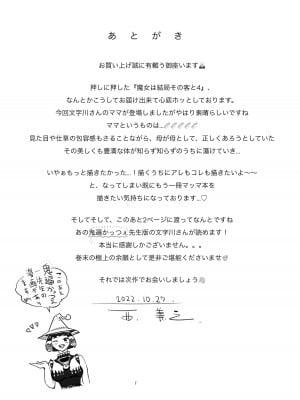 あとがき
お買い上げ誠に有難う御座います
押しに押した『魔女は結局その客と4』、
なんとかこうしてお届け出来て心底ホッとしております。
今回文字川さんのママが登場しましたがやはり素晴らしいですね
ママというものは…
見た目や仕草の包容感もさることながら、母が母として、正しくあろうとしていた
その美しくも豊満な体が知らず知らずのうちに蕩けていき…
いやぁもっと描きたかった…！描くうちにアレもコレも描きたいよ〜〜
と、なってしまい既にもう一冊マッマ本を
描きたい気持ちになっております…♡
そしてそして、このあと2ページに渡ってなんとですね
あの鬼遍かっつぇ先生版の文字川さんが読めます！
本当に感謝しかございません。。。
巻末の極上の余韻として是非ご堪能くださいませ
それでは次作でお会いしましょう
2022.10.27
このあと
鬼遍かっつぇ
先生の